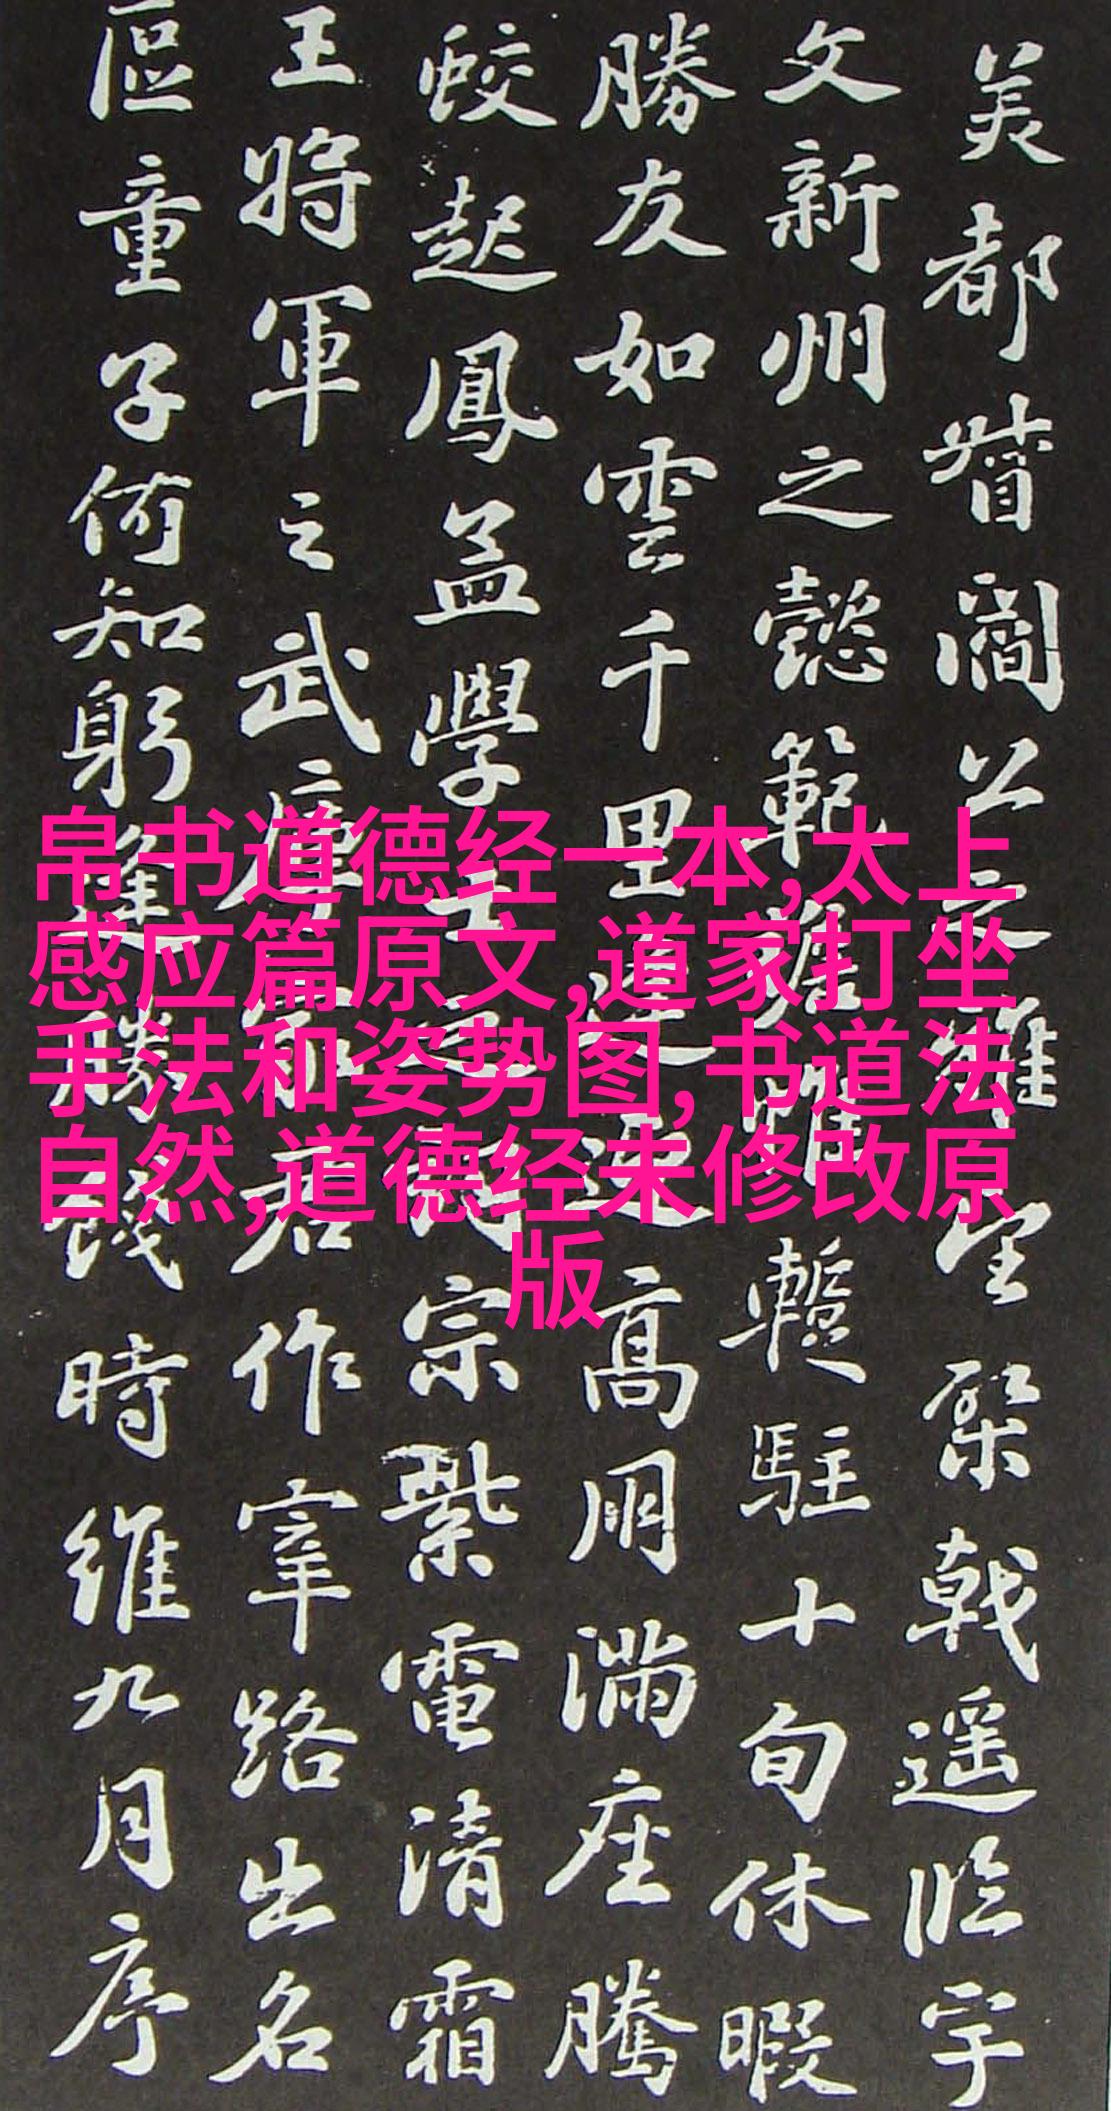 美都督閻公之雅望棨戟遥臨宇
文新州之懿範襜帷暫駐十旬休暇
勝友如雲千里逢迎高朋滿座騰
蛟起鳳孟學士之詞宗紫電清霜
王將軍之武庫家君作宰路出名
區童子何知躬逢勝餞時維九月序
帛书道德经一本,太上
感应篇原文,道家打坐
手法和姿势图,书道法
自然,道德经未修改原
版